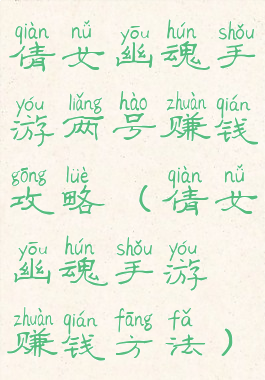 qiàn nǚ yōu hún shǒu
倩女幽魂手
yóu liǎng hào zhuàn qián
游两号赚钱
gōng lüè qiàn nǚ
攻略（倩女
yōu hún shǒu yóu
幽魂手游
zhuàn qián fāng fǎ
赚钱方法）